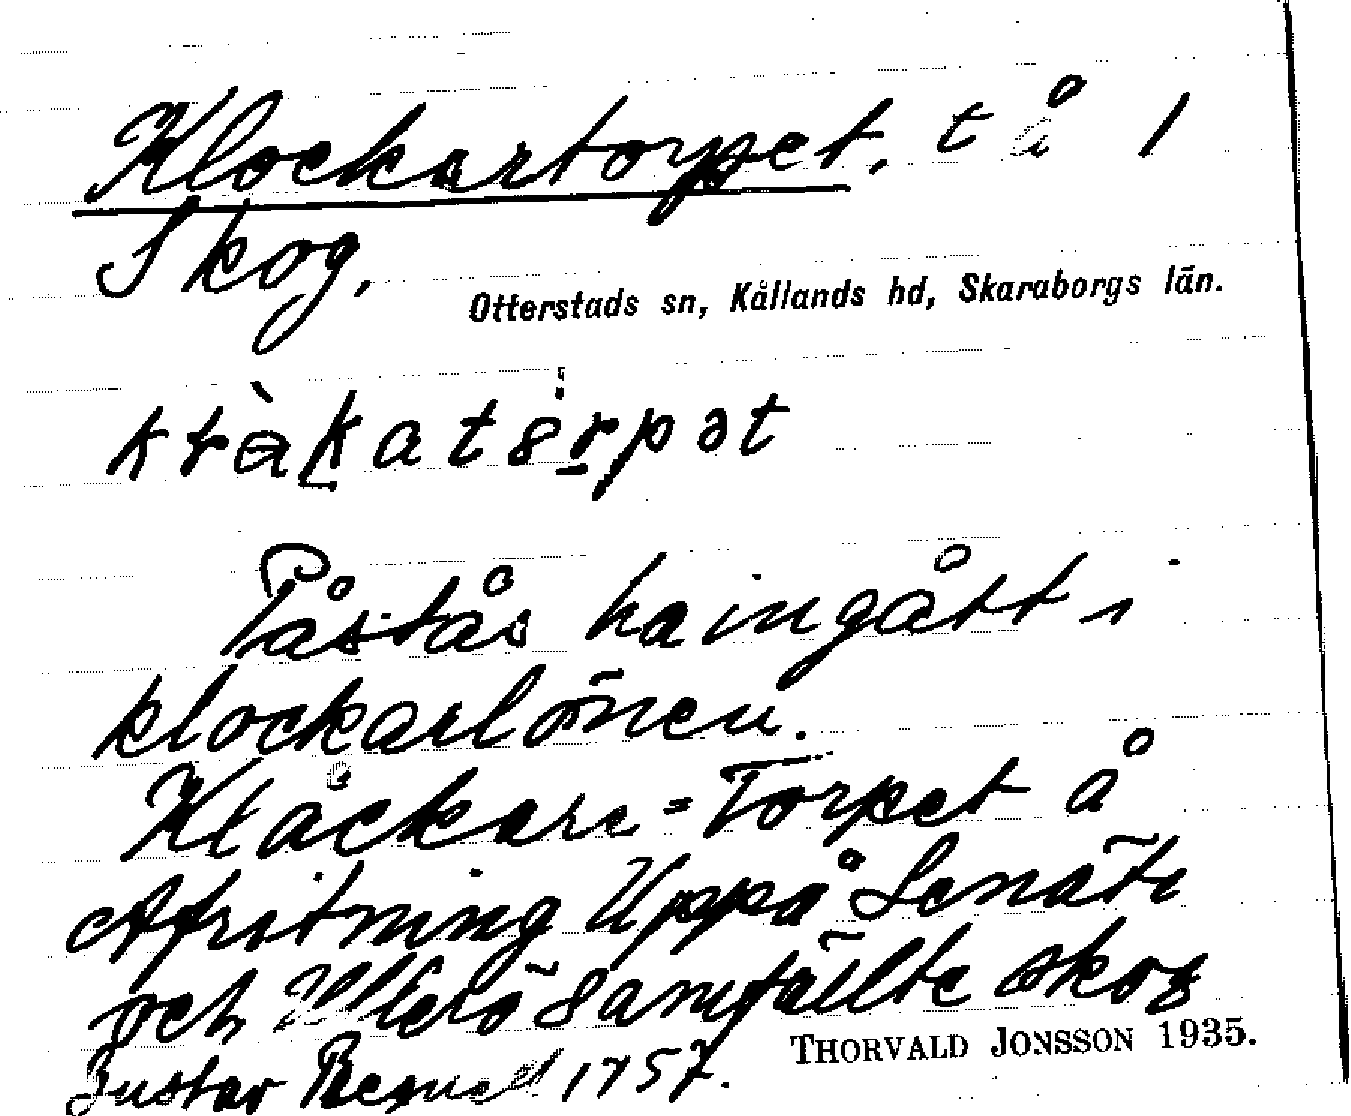 Klockartorpet, t å 1
Skog,
Otterstads sn, Kållands hd, Skaraborgs län.
Påstås ha ingått i
klockarlönen.
Klåckare=Torpet å
Afritning Uppå Senäte
och Ullerö samfällte skog
Gustav 1757.
THORVALD JONSSON 1935.